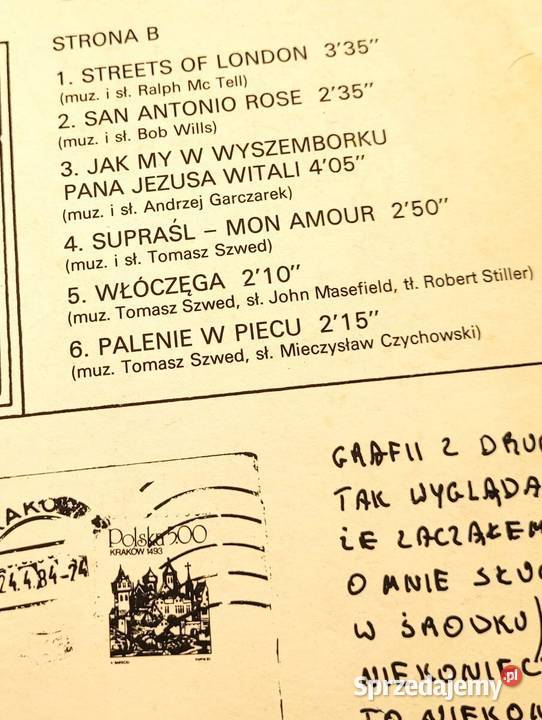 STRONA B
1. STREETS OF LONDON 3'35"
(muz. i sł. Ralph Mc Tell)
2. SAN ANTONIO ROSE 2'35"
(muz. i sł. Bob Wills)
3. JAK MY W WYSZEMBORKU
PANA JEZUSA WITALI 4'05"
(muz. i sł. Andrzej Garczarek)
4. SUPRAŚL – MON AMOUR 2'50"
(muz. i sł. Tomasz Szwed)
5. WŁÓCZĘGA 2'10"
(muz. Tomasz Szwed, sł. John Masefield, tł. Robert Stiller)
6. PALENIE W PIECU 2'15"
(muz. Tomasz Szwed, sł. Mieczysław Czychowski)
RAKÓW
24.4.84-24
Polska 5.00
KRAKÓW 1493
GRAFII Z DRU
TAK WYGLĄDA
ŻE ZACZĄŁEM
O MNIE SŁU
W ŚRODKU)
NIEKONIEC
TO NIEKON
Sprzedajemy.pl